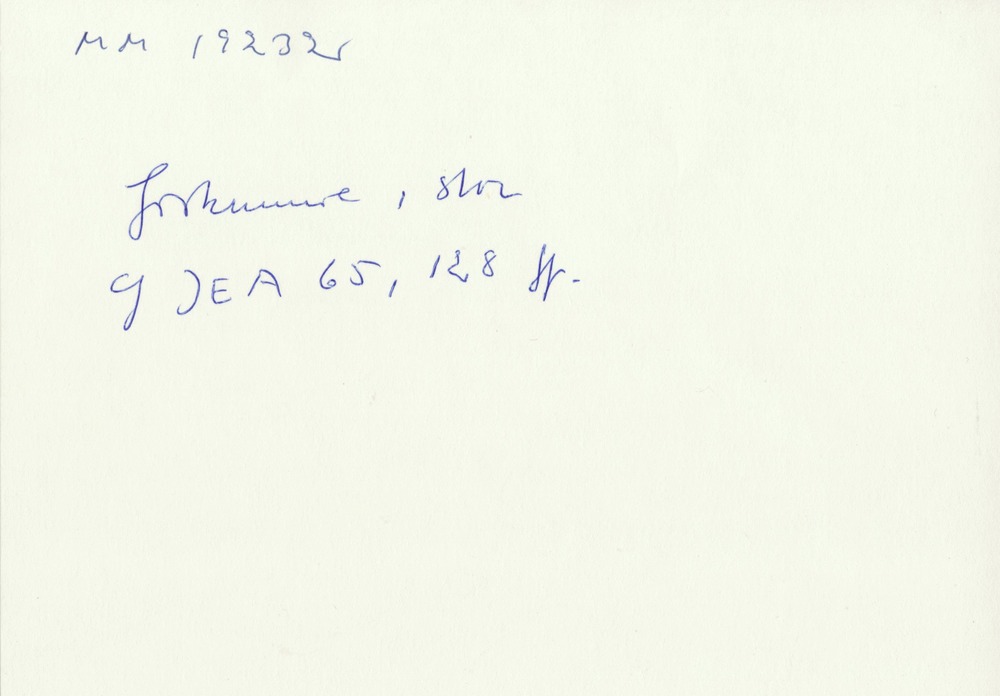 MM 19232
Fiskmumie, stor
cf JEA 65, 128 ff.